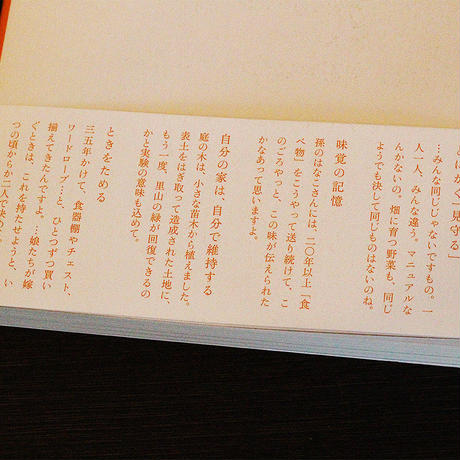 とにかく「見守る」
…みんな同じじゃないですもの。一
人一人、みんな違う。マニュアルな
んかないの。畑に育つ野菜も、同じ
ようでも決して同じものはないのね。
味覚の記憶
孫のはなこさんには、二〇年以上「食
べ物」をこうやって送り続けて、こ
のごろやっと、この味が伝えられた
かなあって思いますよ。
自分の家は、自分で維持する
庭の木は、小さな苗木から植えました。
表土をはぎ取って造成された土地に、
もう一度、里山の緑が回復できるの
かと実験の意味も込めて。
ときをためる
三五年かけて、食器棚やチェスト、
ワードローブ…と、ひとつずつ買い
揃えてきたんですよ。…娘たちが嫁
ぐときは、これを持たせようと、い
つの頃からか二人で決めて